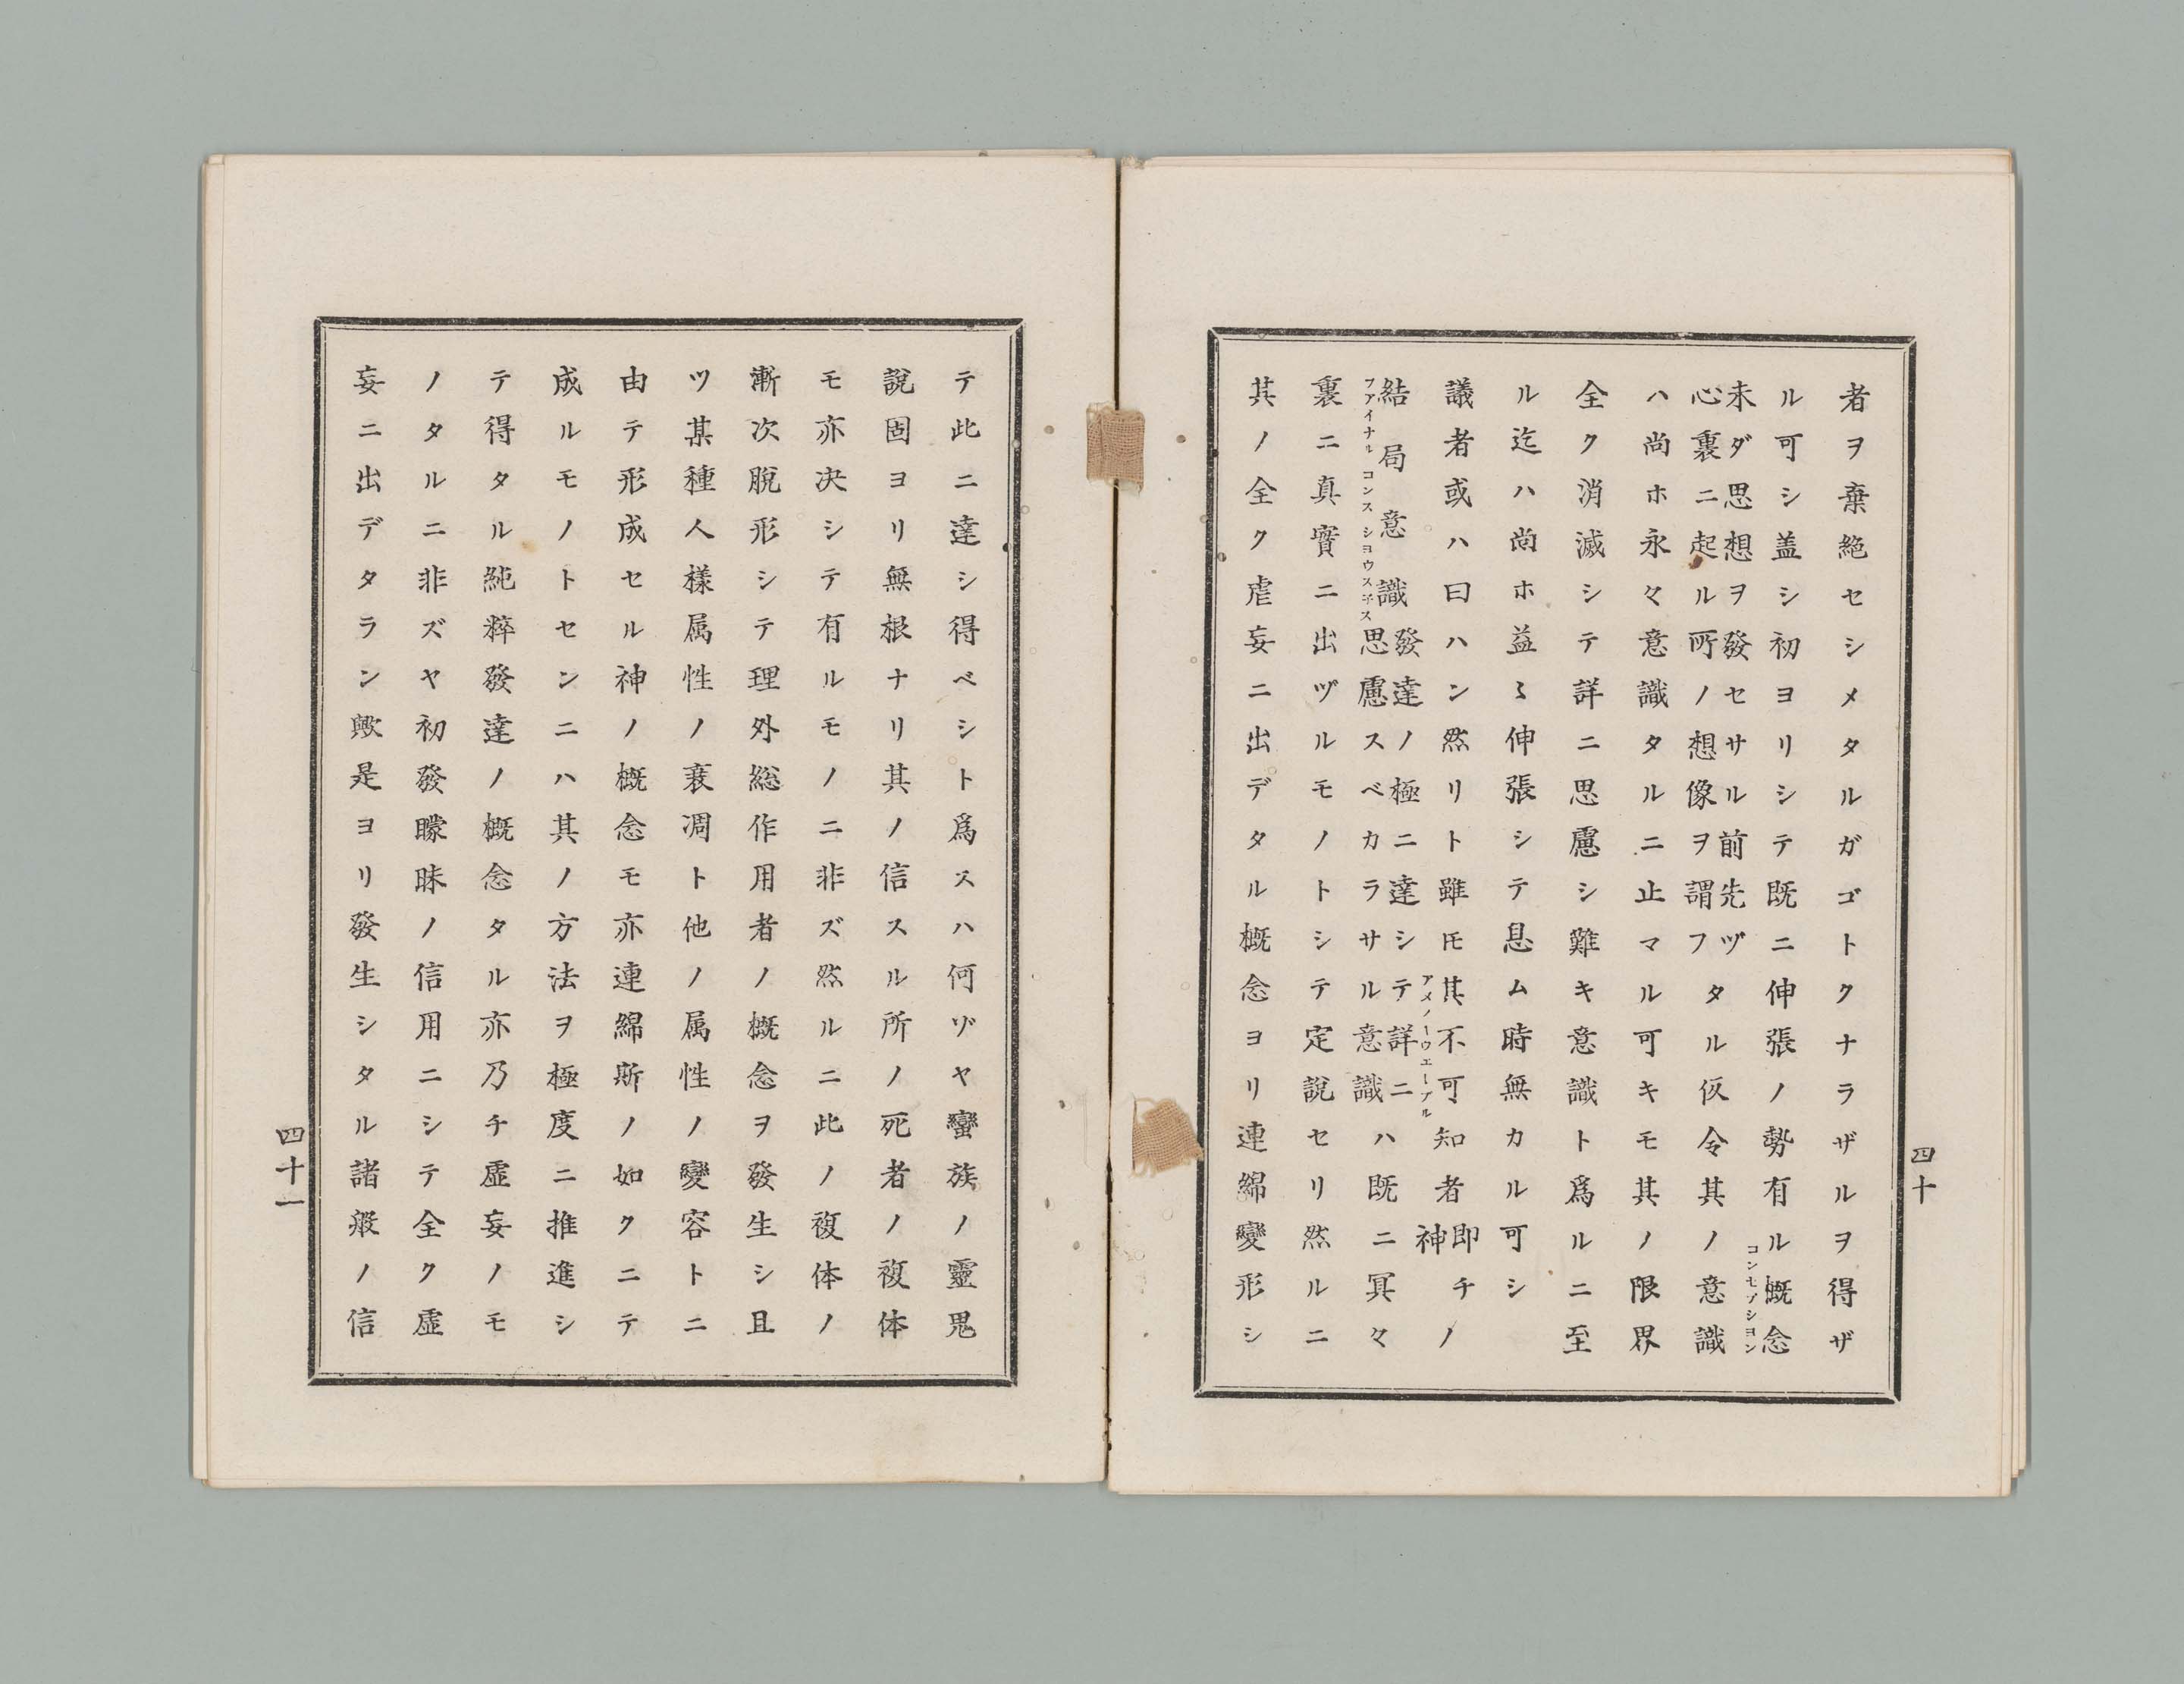 者ヲ棄絶セシメタルガゴトクナラザルヲ得ザ
ル可シ盖シ初ヨリシテ既ニ伸張ノ勢有ル概念
コンセプシヨン
未ダ思想ヲ發セサル前先ヅ
心裏ニ起ル所ノ想像ヲ謂フ
タル仮令其ノ意識
ハ尚ホ永々意識タルニ止マル可キモ其ノ限界
全ク消滅シテ詳ニ思慮シ難キ意識ト爲ルニ至
ル迄ハ尚ホ益〻伸張シテ息ム時無カル可シ
議者或ハ曰ハン然リト雖𪜈其不可知者
アンノーウエーブル
即チ
神
ノ
結局意識
フアイナル コンスシヨウス子ス
發達ノ極ニ達シテ詳ニ
思慮スベカラサル意識
ハ既ニ冥々
裏ニ真實ニ出ヅルモノトシテ定説セリ然ルニ
其ノ全ク虛妄ニ出デタル概念ヨリ連綿變形シ
四十
テ此ニ達シ得ベシト爲スハ何ゾヤ蠻族ノ靈鬼
說固ヨリ無根ナリ其ノ信スル所ノ死者ノ複体
モ亦决シテ有ルモノニ非ズ然ルニ此ノ複体ノ
漸次脱形シテ理外総作用者ノ概念ヲ發生シ且
ツ某種人樣属性ノ衰凋ト他ノ属性ノ變容トニ
由テ形成セル神ノ概念モ亦連綿斯ノ如クニテ
成ルモノトセンニハ其ノ方法ヲ極度ニ推進シ
テ得タル純粹發達ノ概念タル亦乃チ虛妄ノモ
ノタルニ非ズヤ初發矇昧ノ信用ニシテ全ク虛
妄ニ出デタラン歟是ヨリ發生シタル諸般ノ信
四十一